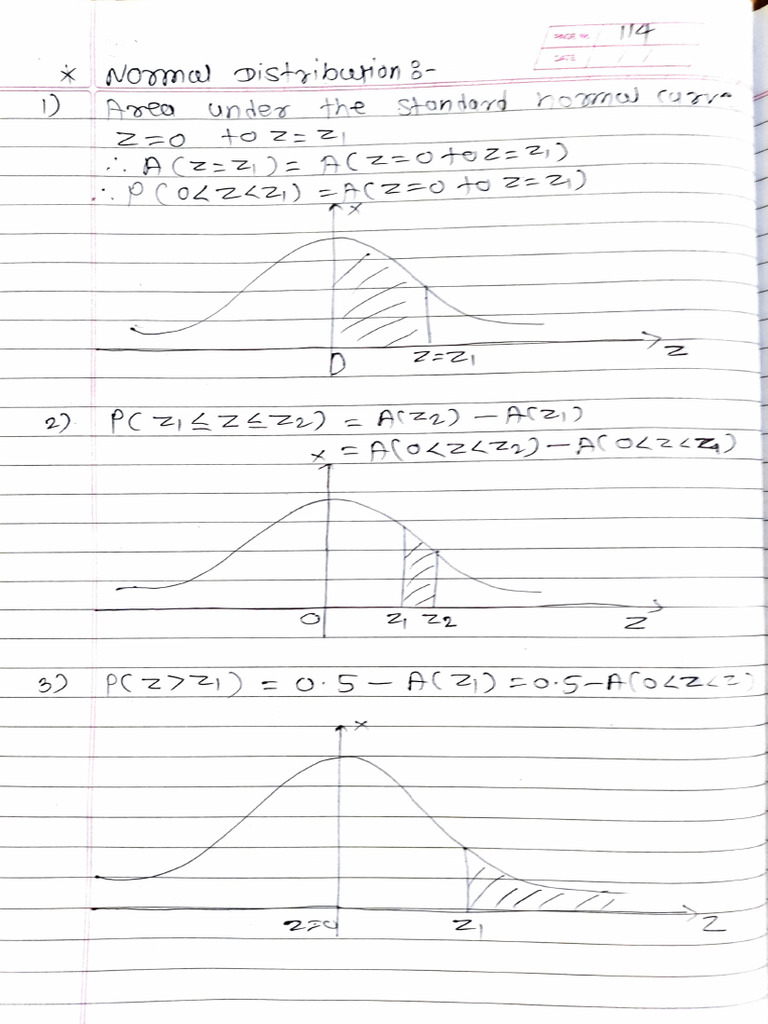 PAGE No. 114
DATE / /
* Normal Distribution :-
1) Area under the standard normal curve
z=0 to z=z₁
∴ A(z=z₁) = A(z=0 to z=z₁)
∴ P(0<z<z₁) = A(z=0 to z=z₁)
x
0 z=z₁ z
2) P(z₁≤z≤z₂) = A(z₂) – A(z₁)
= A(0<z<z₂) – A(0<z<z₁)
x
0 z₁ z₂ z
3) P(z>z₁) = 0.5 – A(z₁) = 0.5–A(0<z<z
x
z=0 z₁ z